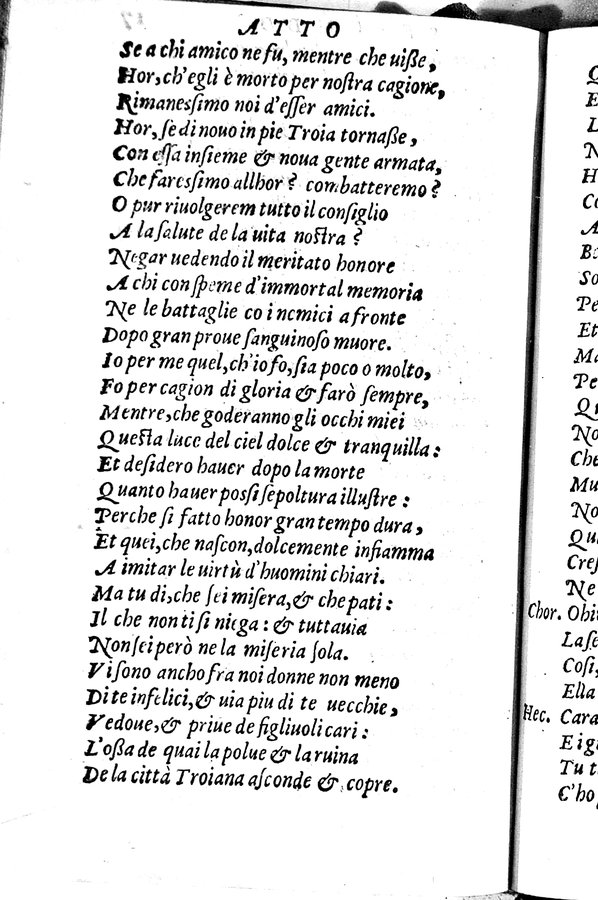 ATTO
Se a chi amico ne fu, mentre che uiſſe,
Hor, ch'egli è morto per noſtra cagione,
Rimaneſsimo noi d'eſſer amici.
Hor, ſe di nouo in pie Troia tornaſſe,
Con eſſa inſieme & noua gente armata,
Che fareſsimo allhor? combatteremo?
O pur riuolgerem tutto il conſiglio
A la ſalute de la uita noſtra?
Negar uedendo il meritato honore
A chi con ſpeme d'immortal memoria
Ne le battaglie co i nemici a fronte
Dopo gran proue ſanguinoſo muore.
Io per me quel, ch'io fo, ſia poco o molto,
Fo per cagion di gloria & farò ſempre,
Mentre, che goderanno gli occhi miei
Queſta luce del ciel dolce & tranquilla:
Et deſidero hauer dopo la morte
Quanto hauer poſſi ſepoltura illuſtre:
Perche ſi fatto honor gran tempo dura,
Et quei, che naſcon, dolcemente infiamma
A imitar le uirtù d'huomini chiari.
Ma tu di, che ſei miſera, & che pati:
Il che non ti ſi niega: & tuttauia
Non ſei però ne la miſeria ſola.
Vi ſono ancho fra noi donne non meno
Di te infelici, & uia più di te uecchie,
Vedoue, & priue de figliuoli cari:
L'oſſa de quai la polue & la ruina
De la città Troiana aſconde & copre.
Chor.
Hec. Cara